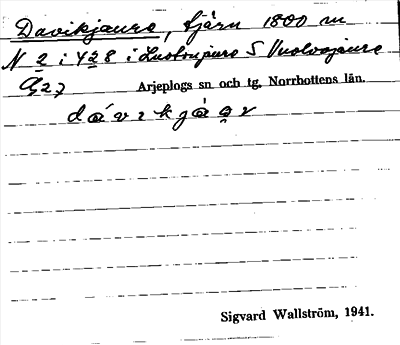 Davikjaure, tjärn 1800 m
N 2 i 428 i Luoknjaure S Vuolvojaure
Arjeplogs sn och tg. Norrbottens län.
dávikjáǫr
Sigvard Wallström, 1941.